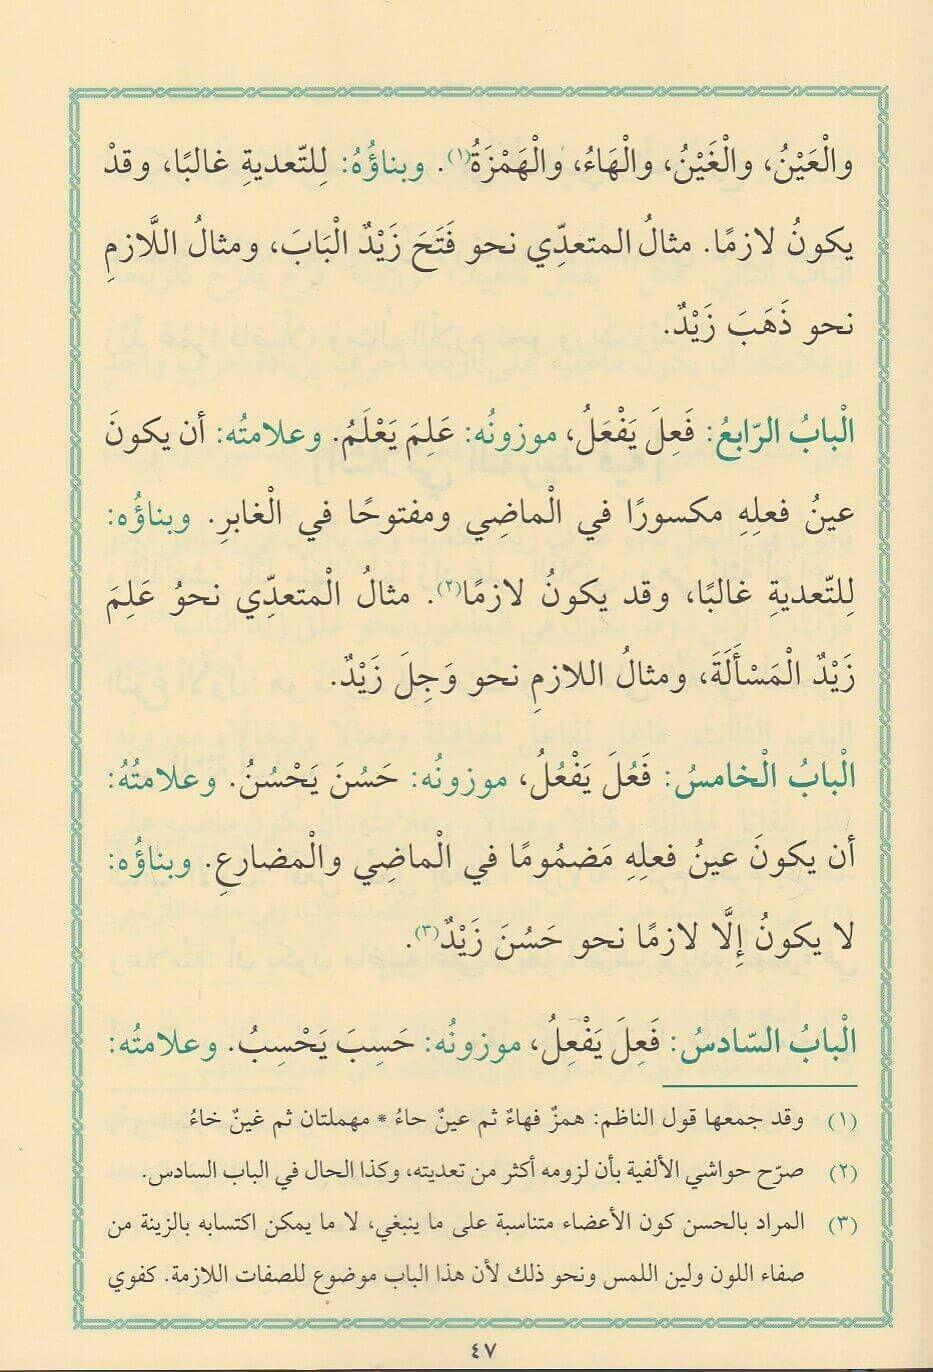 والْعَيْنُ، والْغَيْنُ، والْهَاءُ، والْهَمْزَةُ(١). وبناؤُهُ: لِلتّعديةِ غالبًا، وقدْ
يكونُ لازمًا. مثالُ المتعدِّي نحو فَتَحَ زَيْدٌ الْبَابَ، ومثالُ اللَّازمِ
نحو ذَهَبَ زَيْدٌ.
الْبابُ الرّابعُ: فَعِلَ يَفْعَلُ، موزونُه: عَلِمَ يَعْلَمُ. وعلامتُه: أن يكونَ
عينُ فعلِهِ مكسورًا في الْماضِي ومفتوحًا في الْغابرِ. وبناؤُه:
لِلتّعديةِ غالبًا، وقد يكونُ لازمًا(٢). مثالُ الْمتعدِّي نحوُ عَلِمَ
زَيْدٌ الْمَسْأَلَةَ، ومثالُ اللازمِ نحو وَجِلَ زَيْدٌ.
الْبابُ الْخامسُ: فَعُلَ يَفْعُلُ، موزونُه: حَسُنَ يَحْسُنُ. وعلامتُهُ:
أن يكونَ عينُ فعلِهِ مَضمُومًا في الْماضِي والْمضارعِ. وبناؤُه:
لا يكونُ إِلَّا لازمًا نحو حَسُنَ زَيْدٌ(٣).
الْبابُ السّادسُ: فَعِلَ يَفْعِلُ، موزونُه: حَسِبَ يَحْسِبُ. وعلامتُه:
(١) وقد جمعها قول الناظم: همزٌ فهاءٌ ثم عينٌ حاءُ * مهملتان ثم غينٌ خاءُ
(٢) صرّح حواشي الألفية بأن لزومه أكثر من تعديته، وكذا الحال في الباب السادس.
(٣) المراد بالحسن كون الأعضاء متناسبة على ما ينبغي، لا ما يمكن اكتسابه بالزينة من
صفاء اللون ولين اللمس ونحو ذلك لأن هذا الباب موضوع للصفات اللازمة. كفوي
٤٧